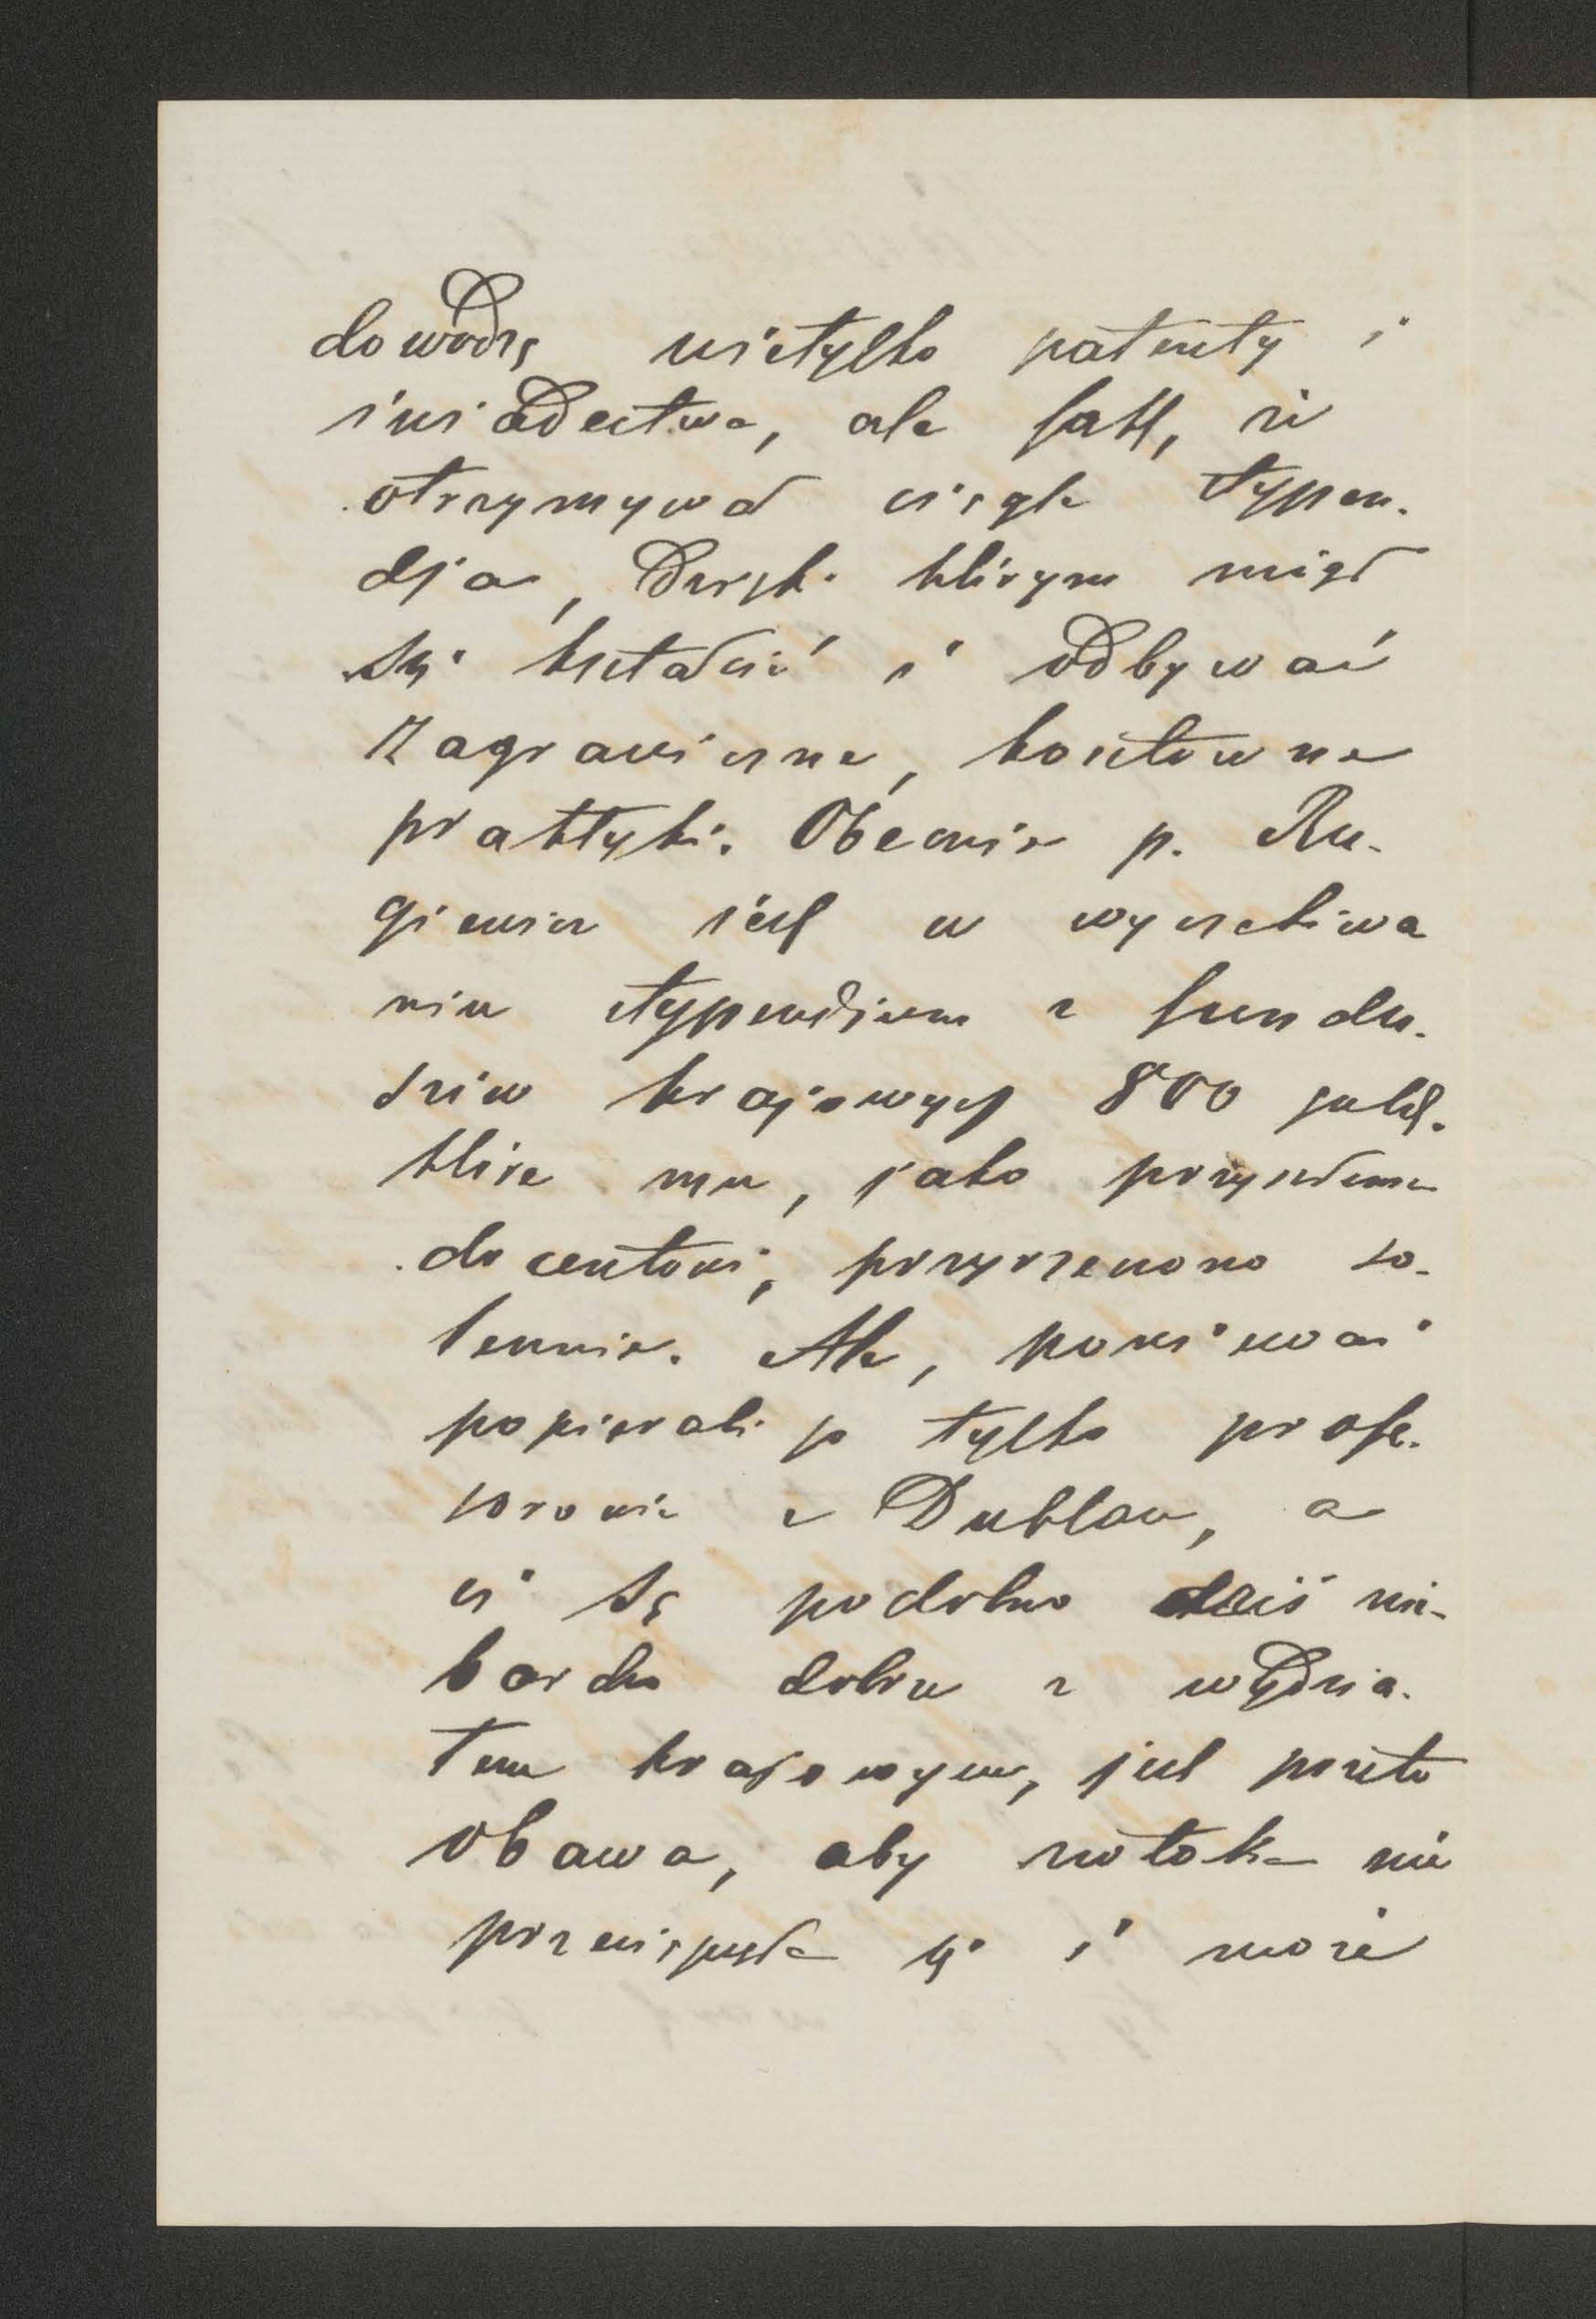 dowodzą nietylko patenty i
świadectwa, ale fakt, że
otrzymywał ciągle stypen-
dja, dzięki którym mógł
się kształcić i odbywać
zagraniczne, kosztowne
praktyki. Obecnie p. Ru-
giewicz jest w wyczekiwa
niu stypendjum z fundu-
szów krajowych 800 guld.
które mu, jako przyszłemu
docentowi, przyrzeczono so-
lennie. Ale, ponieważ
popierali go tylko profe-
sorowie z Dublan, a
ci są podobno dziś nie-
bardzo dobrze z wydzia-
łem krajowym, jest przeto
obawa, aby zwłoka nie
przeciągnęła się i może